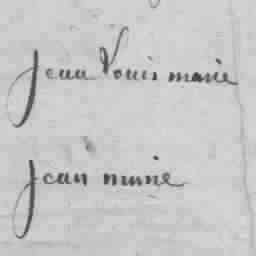 jean louis marie
jean marie